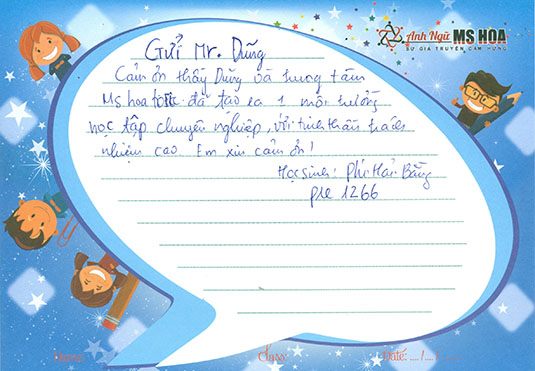 Anh Ngữ MS HOA
SỨ GIẢ TRUYỀN CẢM HỨNG
Gửi Mr. Dũng
Cảm ơn thầy Dũng và trung tâm
Ms hoa toeic đã tạo ra 1 môi trường
học tập chuyên nghiệp, với tinh thần trách
nhiệm cao. Em xin cảm ơn!
Học sinh: Phí Hải Bằng
pre 1266
Name:
Class:
Date: ..../..../....